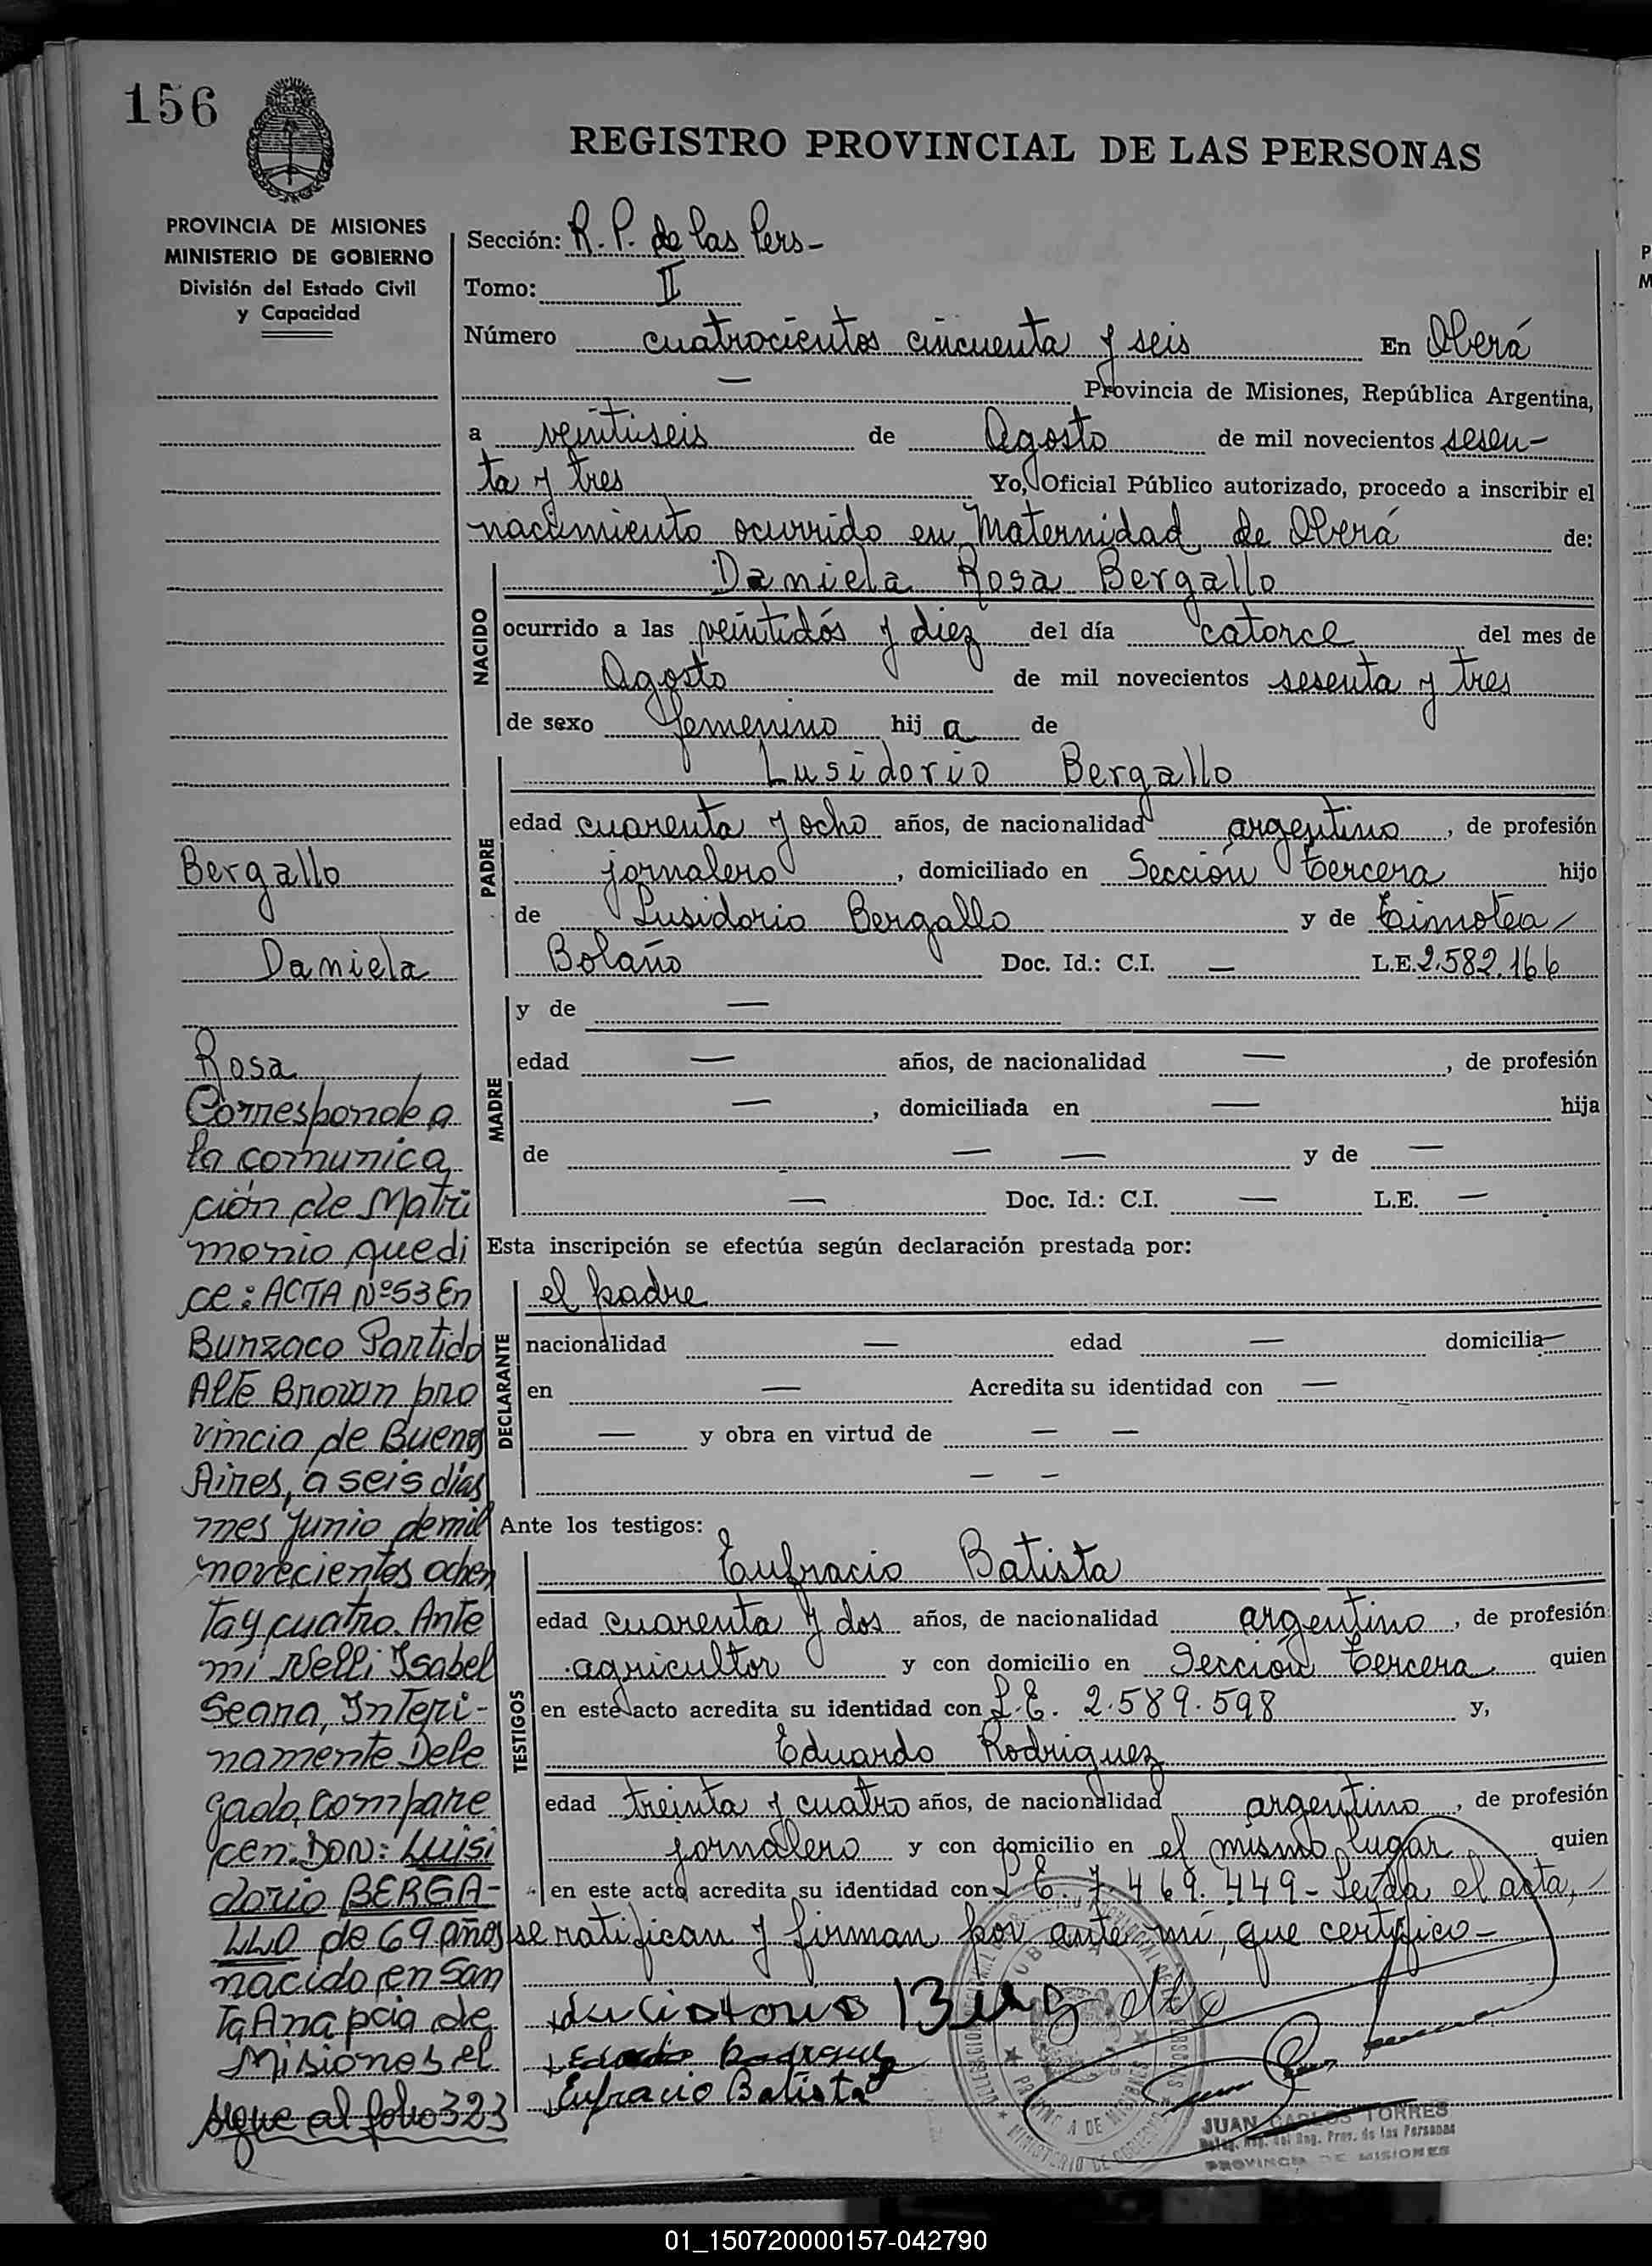 156
REGISTRO PROVINCIAL DE LAS PERSONAS
PROVINCIA DE MISIONES
MINISTERIO DE GOBIERNO
División del Estado Civil
y Capacidad
Sección: R. P. de las Pers-
Tomo: II
Número cuatrocientos cincuenta y seis En Oberá
— Provincia de Misiones, República Argentina,
a veintiseis de Agosto de mil novecientos sesen-
ta y tres Yo, Oficial Público autorizado, procedo a inscribir el
nacimiento ocurrido en Maternidad de Oberá de:
NACIDO
Daniela Rosa Bergallo
ocurrido a las veintidós y diez del día catorce del mes de
Agosto de mil novecientos sesenta y tres
de sexo femenino hij a de
PADRE
Lusidorio Bergallo
edad cuarenta y ocho años, de nacionalidad argentino, de profesión
jornalero, domiciliado en Sección tercera hijo
de Lusidorio Bergallo y de Timotea
Bolaño Doc. Id.: C.I. — L.E. 2.582.166
MADRE
y de —
edad — años, de nacionalidad —, de profesión
—, domiciliada en — hija
de — — y de —
— Doc. Id.: C.I. — L.E. —
Esta inscripción se efectúa según declaración prestada por:
DECLARANTE
el padre
nacionalidad — edad — domicilia—
en — Acredita su identidad con —
— y obra en virtud de — —
— —
Ante los testigos:
TESTIGOS
Eufracio Batista
edad cuarenta y dos años, de nacionalidad argentino, de profesión
agricultor y con domicilio en Sección tercera quien
en este acto acredita su identidad con L.E. 2.589.598 y,
Eduardo Rodriguez
edad treinta y cuatro años, de nacionalidad argentino, de profesión
jornalero y con domicilio en el mismo lugar quien
en este acto acredita su identidad con L.E. 7.469.449- Leída el acta,
se ratifican y firman por ante mí, que certifico-
Eufracio Batista
JUAN CARLOS TORRES
PROVINCIA DE MISIONES
Bergallo
Daniela
Rosa
Corresponde a
la comunica
ción de Matri
monio que di
ce: ACTA Nº 53 En
Burzaco Partido
Alte Brown pro
vincia de Buenos
Aires, a seis días
mes Junio de mil
novecientos ochen
ta y cuatro. Ante
mí Nelli Isabel
Seana, Interi-
namente Dele
gada, compare
cen. DON: LUISI
dorio BERGA-
LLO de 69 años
nacido en San
ta Ana pcia de
Misiones el
sigue al folio 323
01_150720000157-042790